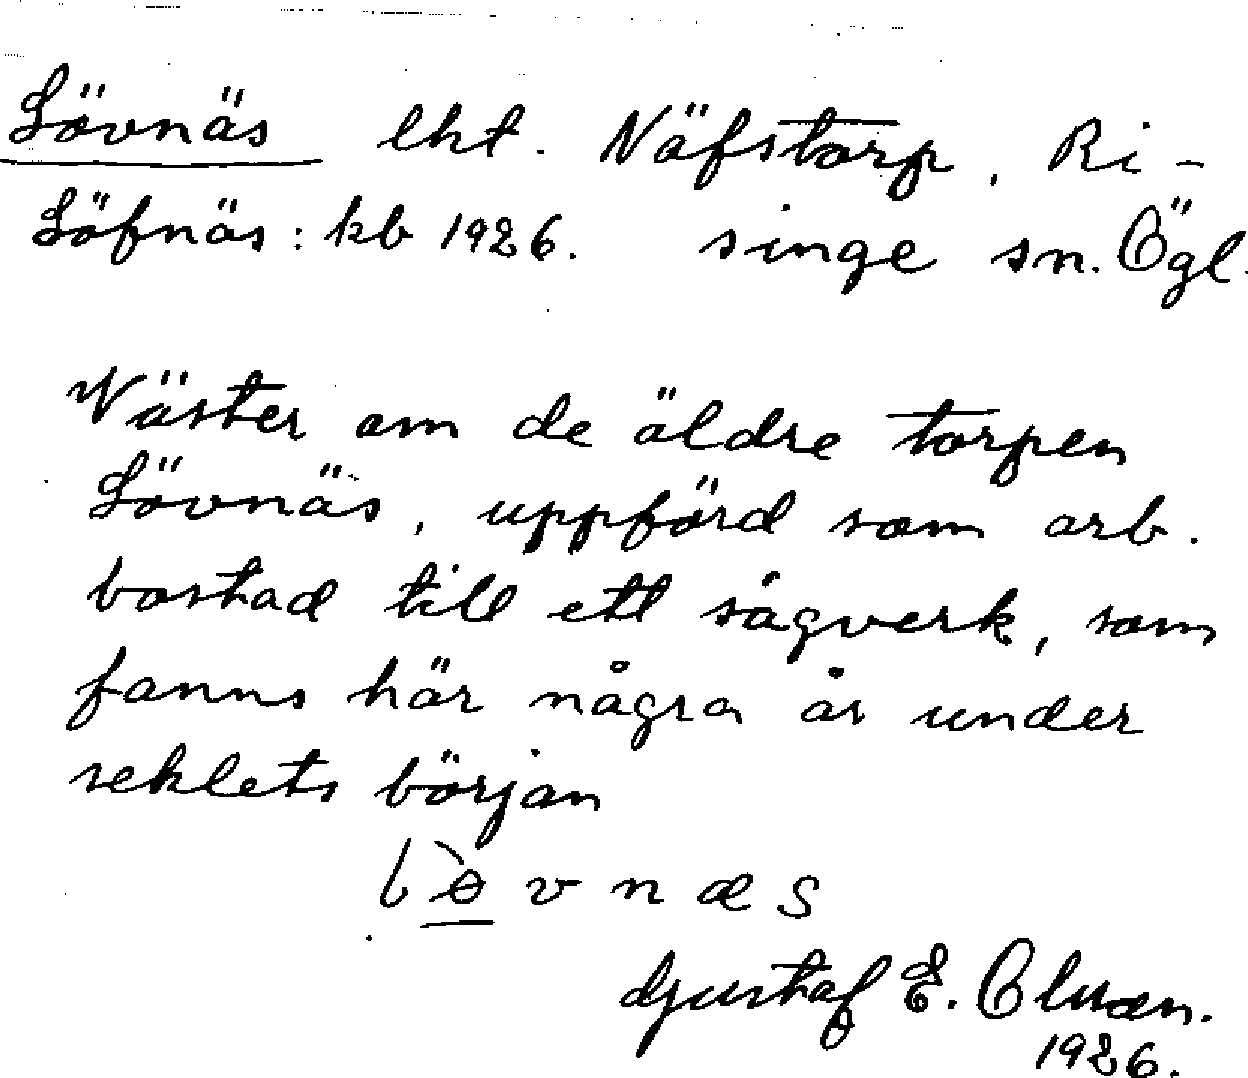 Lövnäs lht. Näfstorp, Ri-
Löfnäs: kb 1926. singe sn. Ögl.
Väster om de äldre torpen
Lövnäs, uppförd som arb.
bostad till ett sågverk, som
fanns här några år under
seklets början
lø̀vnæs
Gustaf E. Olsson.
1926.